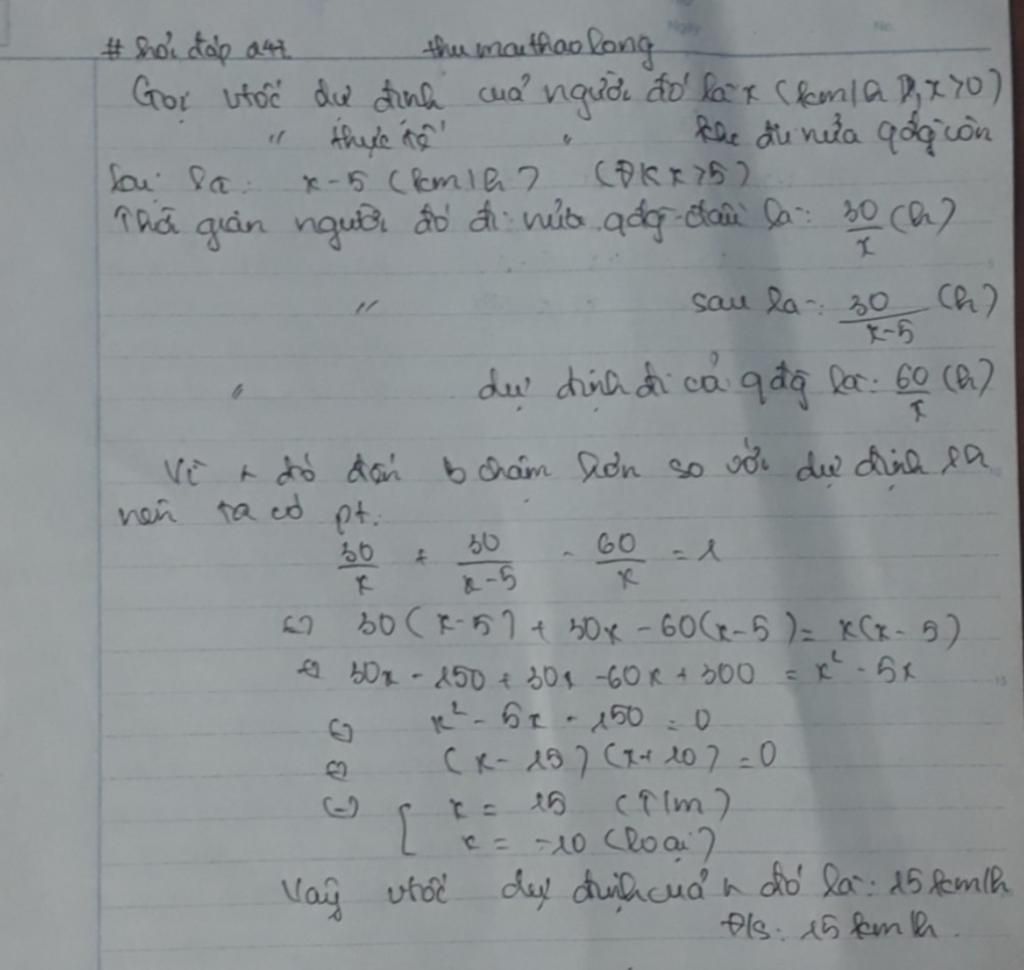 # hỏi đáp a47 thumaithaolong
Gọi vtốc dự định của người đó là x (km/h), x>0)
" thực tế " khi đi nửa qđg còn
lại là: x-5 (km/h) (ĐK x>5)
Thời gian người đó đi nửa qđg đầu là: 30/x (h)
" sau là: 30/x-5 (h)
" dự định đi cả qđg là: 60/x (h)
Vì n đó đến b chậm hơn so với dự định 1h
nên ta có pt:
30/x + 30/x-5 - 60/x = 1
<=> 30(x-5) + 30x - 60(x-5) = x(x-5)
<=> 30x - 150 + 30x - 60x + 300 = x² - 5x
<=> x² - 5x - 150 = 0
<=> (x-15)(x+10) = 0
<=> [ x = 15 (T/m)
x = -10 (loại)
Vậy vtốc dự định của n đó là: 15 km/h
Đ/S: 15 km/h.